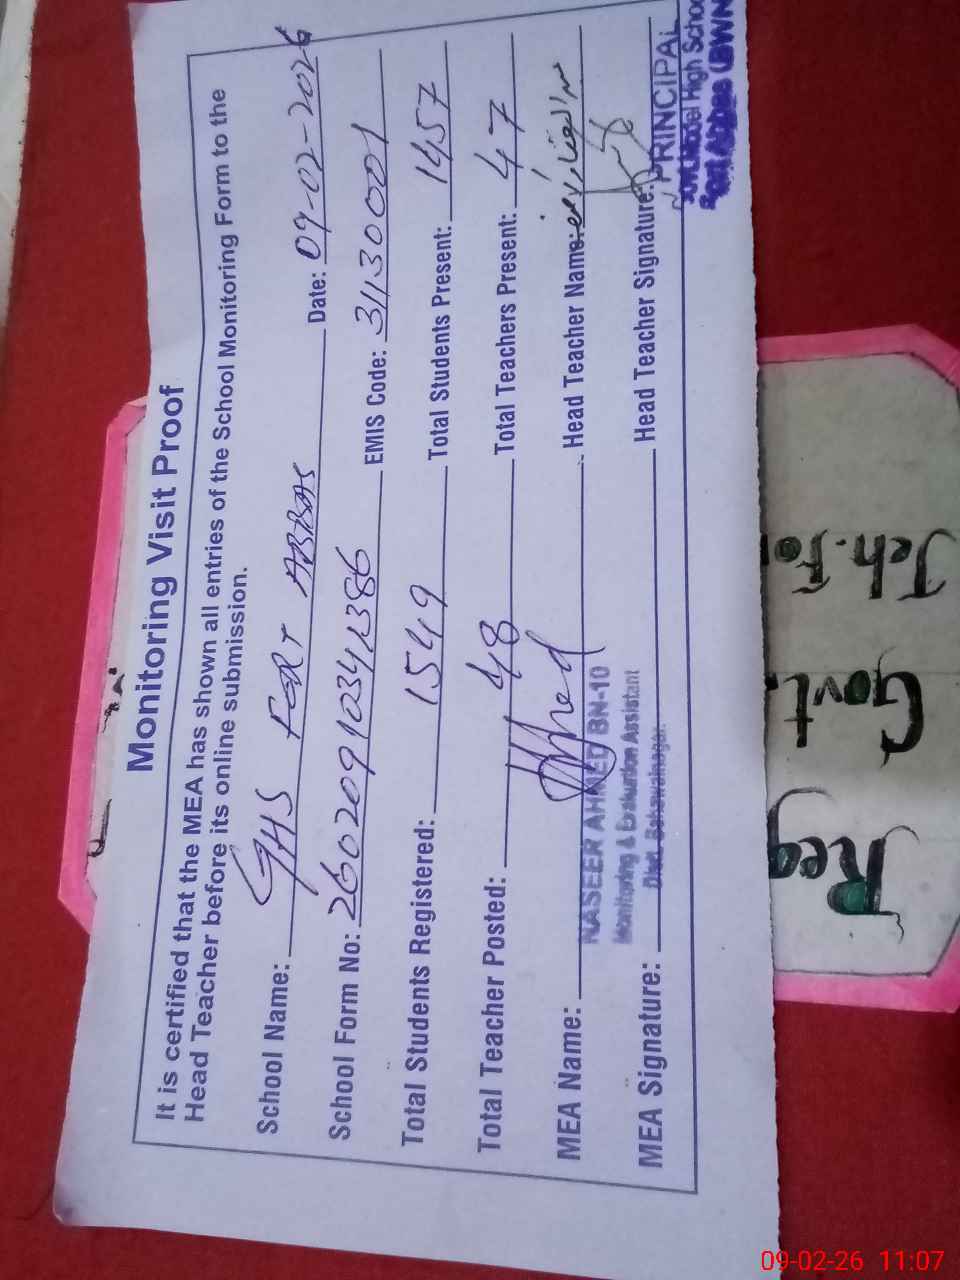 Monitoring Visit Proof
It is certified that the MEA has shown all entries of the School Monitoring Form to the
Head Teacher before its online submission.
School Name: GHS FORT ABBAS Date: 09-02-2026
School Form No: EMIS Code: 31130001
Total Students Registered: 1549 Total Students Present: 1457
Total Teacher Posted: 48 Total Teachers Present: 47
MEA Name: NASEER AHMED BN-10 Head Teacher Name:
Monitoring & Evaluation Assistant
MEA Signature: Distt. Bahawalnagar. Head Teacher Signature:
PRINCIPAL
Govt. Model High School
Fort Abbas (BWN
Reg Govt. Tch. Fo
09-02-26 11:07